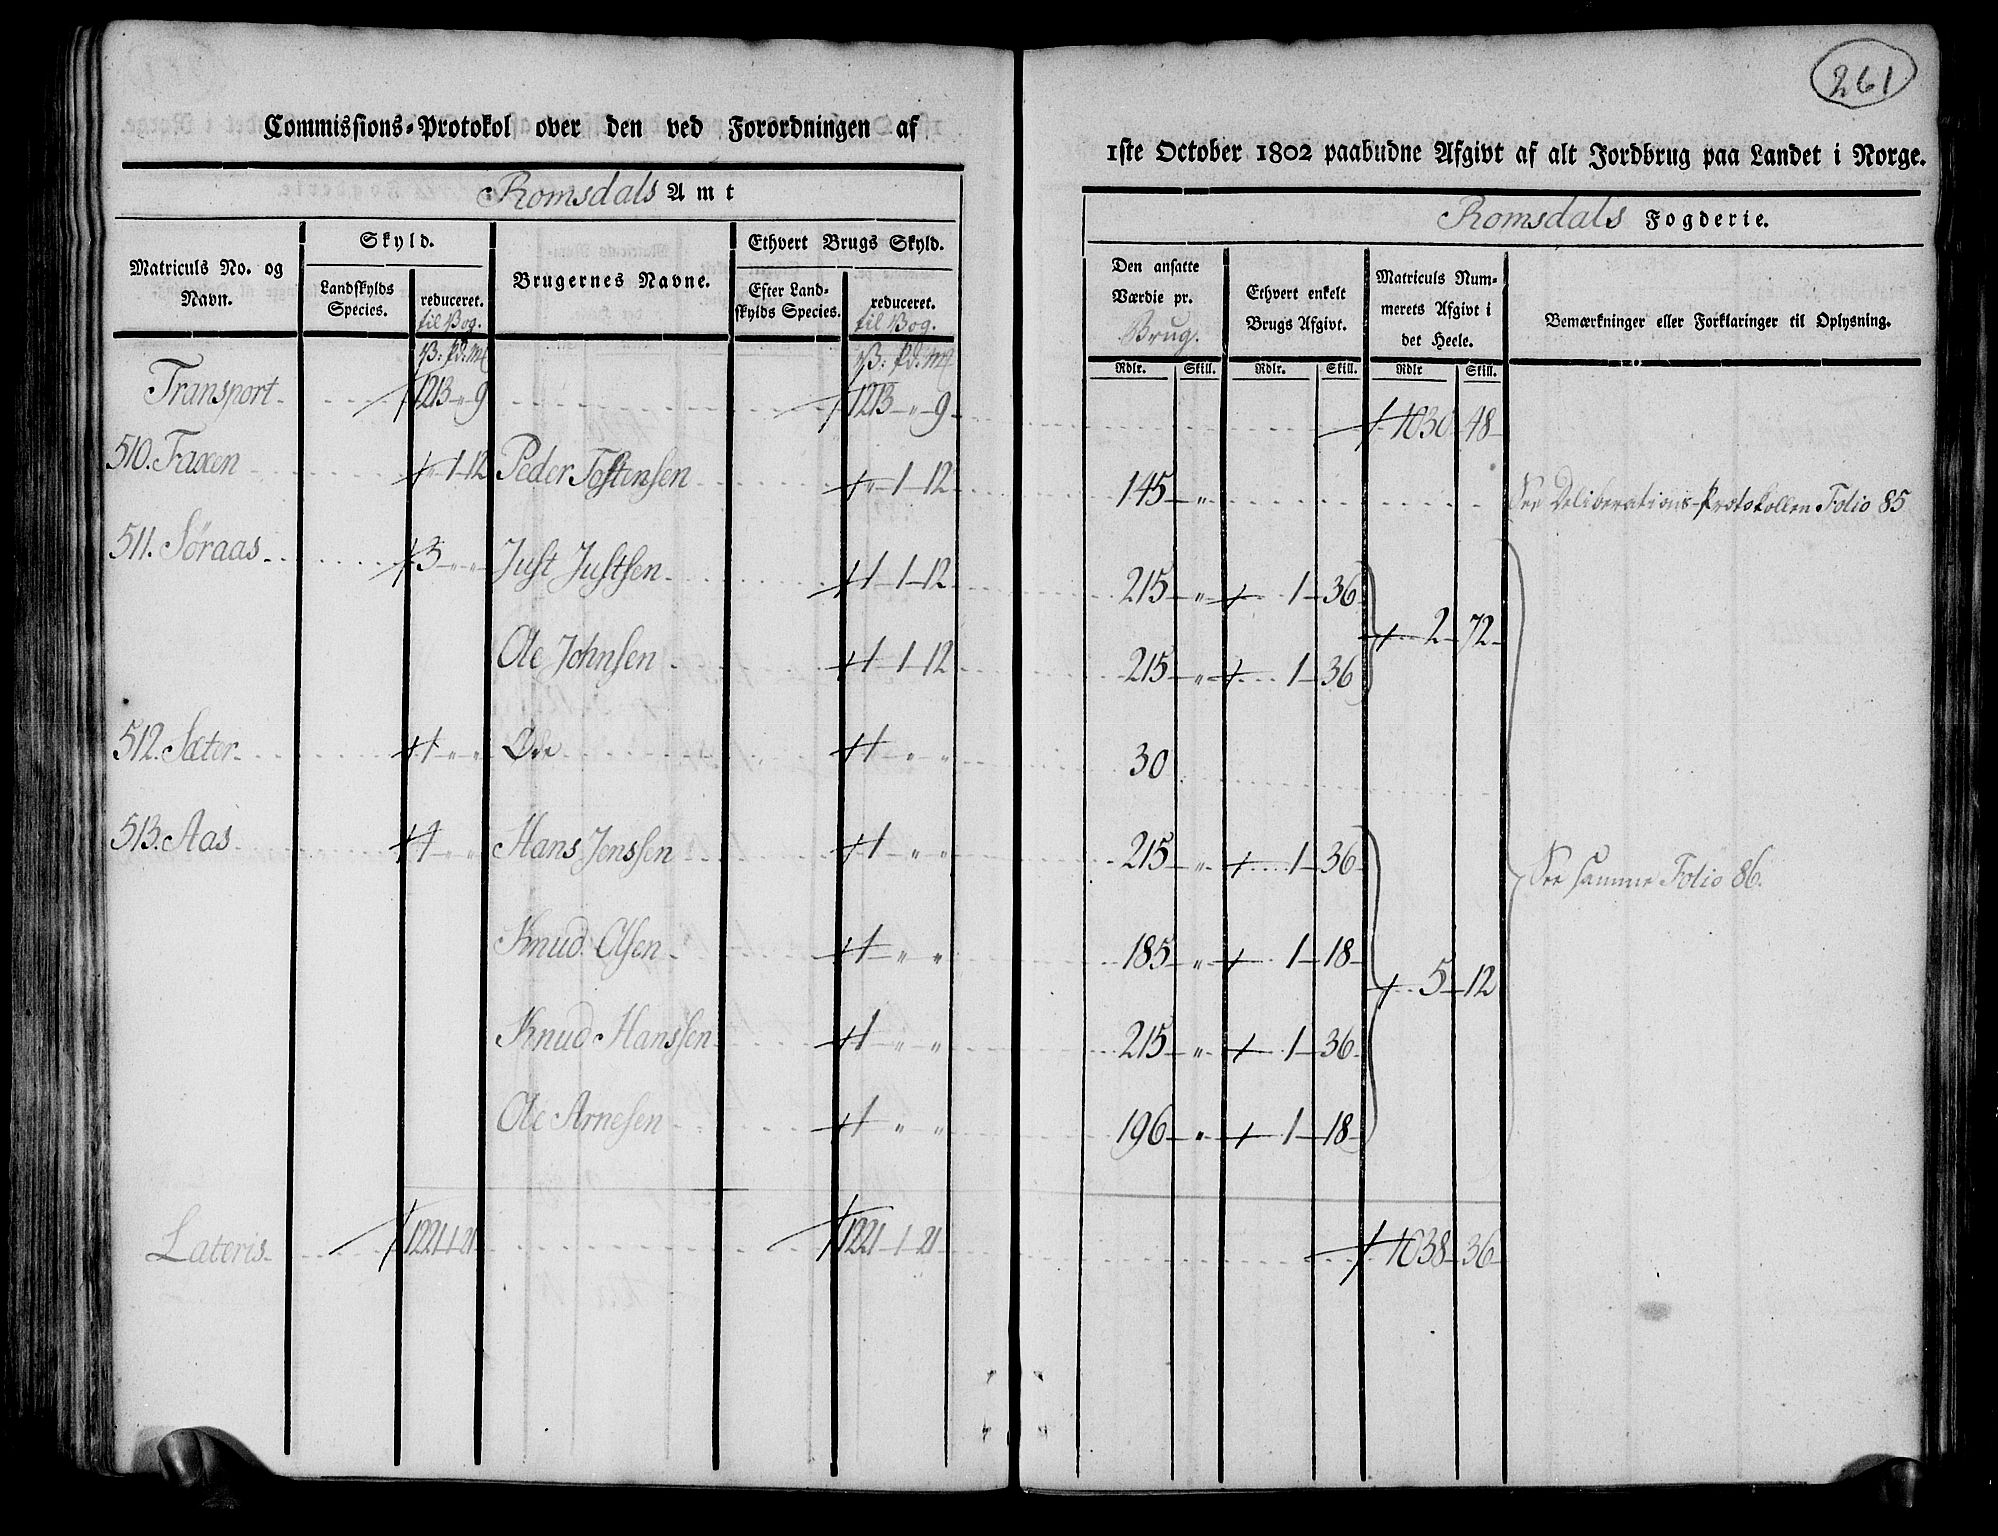 261
Commissions-Protokol over den ved Forordningen af
1ste October 1802 paabudne Afgivt af alt Jordbrug paa Landet i Norge.
Romsdals Amt
Romsdals Fogderie.
Matriculs No. og Navn.
Skyld.
Landskylds Species.
reduceret. til Vog.
Brugernes Navne.
Ethvert Brugs Skyld.
Efter Landskylds Species.
reduceret. til Vog.
Den ansatte Værdie pr. Brug.
Ethvert enkelt Brugs Afgivt.
Matriculs Nummerets Afgivt i det Heele.
Bemærkninger eller Forklaringer til Oplysning.
V: Pd: Mk V: Pd: Mk Rdlr. Skill. Rdlr. Skill. Rdlr Skill.
Transport 1213 " 9 1213 " 9 1030 48
510. Faxen " 1 12 Peder Tostensen " 1 12 145 " See Deliberations-Protokollen Folio 85
511. Søraas 3 " " Just Justsen 1 1 12 215 " 1 36
2 72
Ole Johnsen 1 1 12 215 " 1 36
512. Sæter 1 " " Øde 1 " " 30
513. Aas 4 " " Hans Jenssen 1 " " 215 " 1 36
See samme Folio 86.
Knud Olsen 1 " " 185 " 1 18
5 12
Knud Hanssen 1 " " 215 " 1 36
Ole Arnesen 1 " " 196 " 1 18
Lateris 1221 1 21 1221 1 21 1038 36